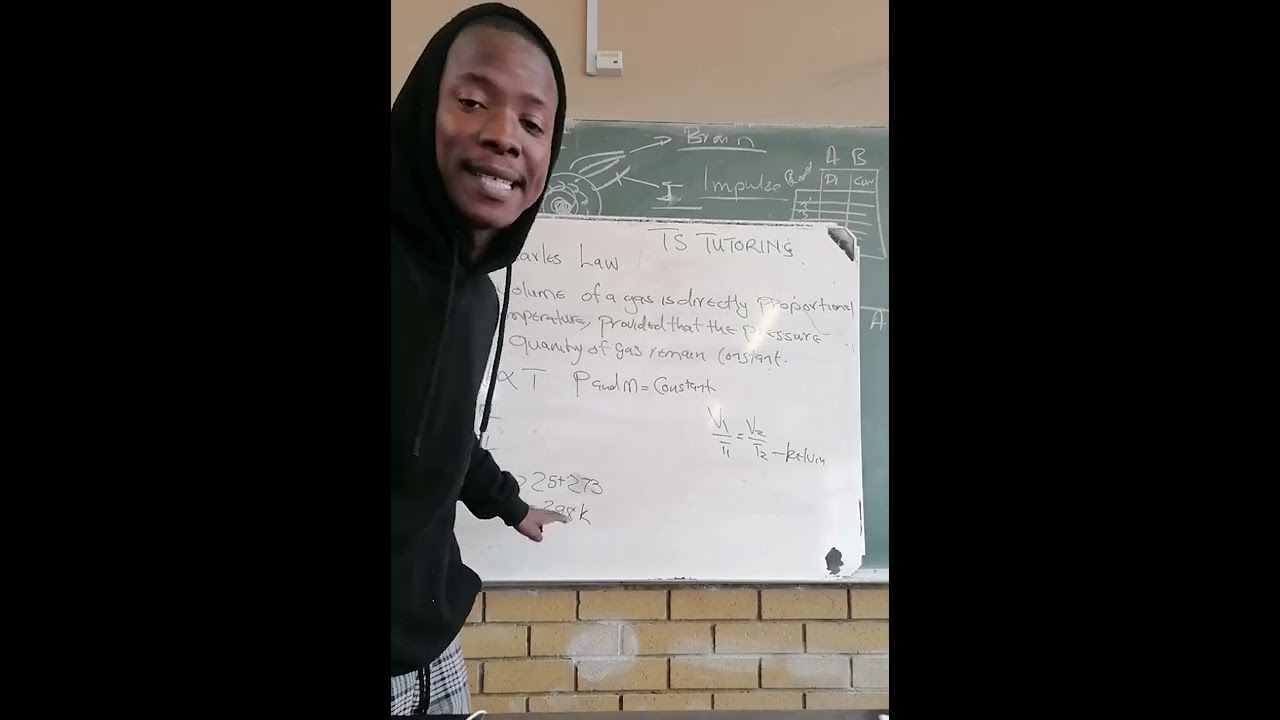 Brain
A B
Impulse
TS TUTORING
arles Law
olume of a gas is directly proportional
mperature, provided that the pressure
Quantity of gas remain constant.
∝ T P and n = constant
V1/T1 = V2/T2 - kelvin
25+273
298k
A